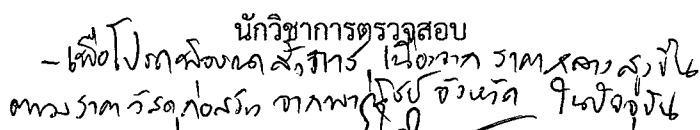 นักวิชาการตรวจสอบ
- เพื่อโปรดพิจารณาสั่งการ เนื่องจาก ราคากลางสูงขึ้น
ตามราคาวัสดุก่อสร้าง จากพาณิชย์จังหวัด ในปัจจุบัน